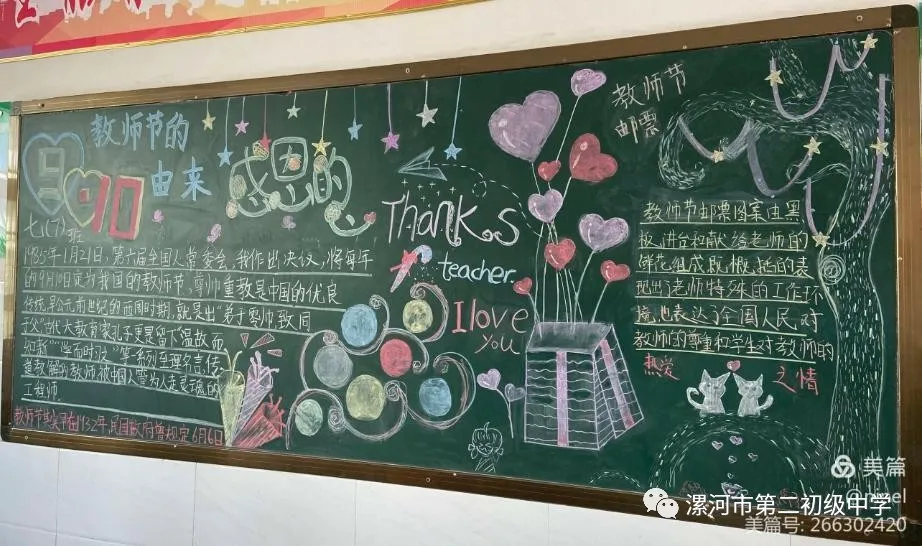 教师节的
由来
9.10
七(7)班
1985年1月21日，第六届全国人常委会，我作出决议，将每年
的9月10日定为我国的教师节，尊师重教是中国的优良
传统，早公元前世纪的西周时期，就提出弟子事师，敬同
于父"古代大教育家孔子更是留下"温故而
知新""学而时习之"等一系列至理名言，传
道教解的教师被中国人誉为人走灵魂的
工程师
教师节其实早在1932年，民国政府曾规定6月6日
感恩的
Thanks
teacher
I love
you
教师节
邮票
教师节邮票图案由黑
板、讲台和献给老师的
鲜花组成，既概括的表
现出老师特殊的工作环
境，也表达了全国人民对
教师的尊重和学生对教师的
热爱之情
美篇
漯河市第二初级中学
美篇号: 266302420